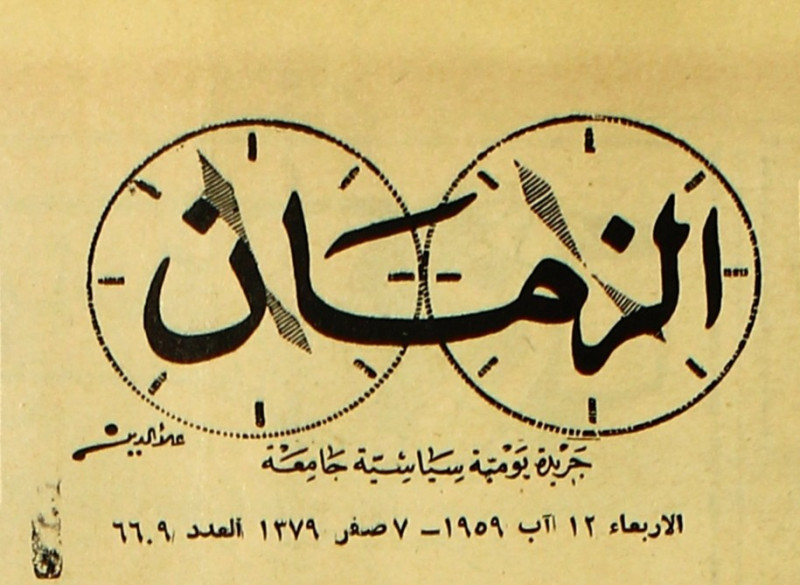 الزمان
علاء الدين
جريدة يومية سياسية جامعة
الاربعاء ١٢ آب ١٩٥٩ - ٧ صفر ١٣٧٩ العدد ٦٦٠٩